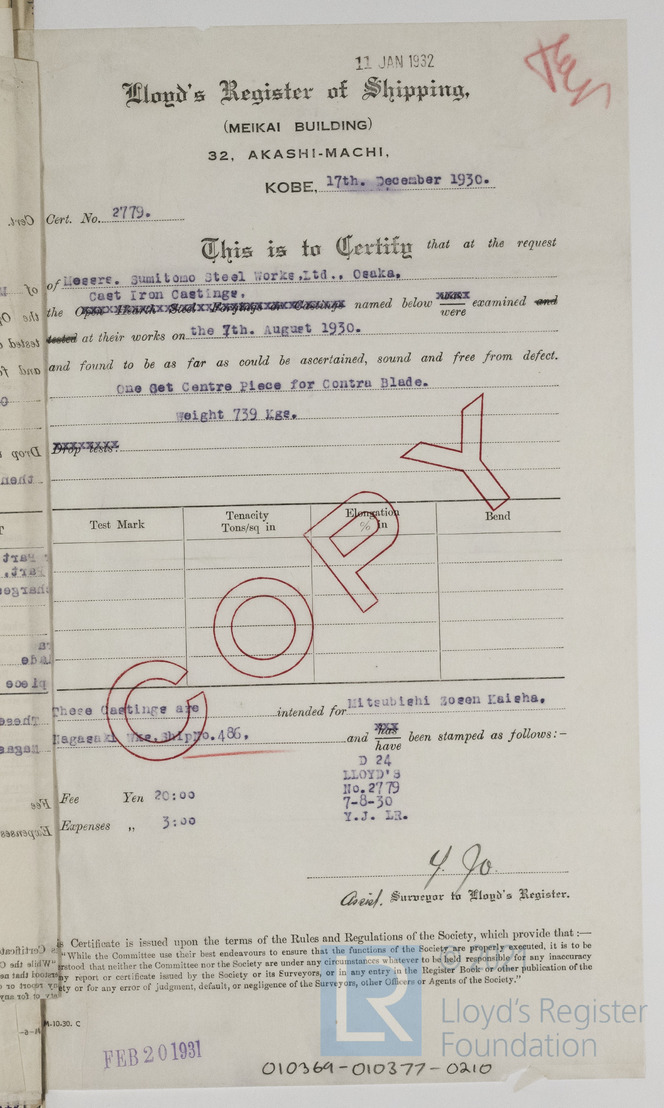 11 JAN 1932
Lloyd's Register of Shipping,
(MEIKAI BUILDING)
32, AKASHI-MACHI,
KOBE, 17th. December 1930.
Cert. No. 2779.
This is to Certify that at the request
of Messrs. Sumitomo Steel Works, Ltd., Osaka,
Cast Iron Castings,
the Open Hearth Steel Forgings or Castings named below were examined and
tested at their works on the 7th. August 1930.
and found to be as far as could be ascertained, sound and free from defect.
One Get Centre Piece for Contra Blade.
Weight 739 Kgs.
Drop tests:
Test Mark Tenacity Tons/sq in Elongation % in Bend
COPY
These Castings are intended for Mitsubishi Zosen Kaisha,
Nagasaki Wks. Ship No. 486. and has have been stamped as follows:-
D 24
LLOYD'S
No. 2779
Fee Yen 20:00 7-8-30
Expenses „ 3:00 Y.J. LR.
Y. Jo
Assist. Surveyor to Lloyd's Register.
s Certificate is issued upon the terms of the Rules and Regulations of the Society, which provide that :—
"While the Committee use their best endeavours to ensure that the functions of the Society are properly executed, it is to be
rstood that neither the Committee nor the Society are under any circumstances whatever to be held responsible for any inaccuracy
ny report or certificate issued by the Society or its Surveyors, or in any entry in the Register Book or other publication of the
ety or for any error of judgment, default, or negligence of the Surveyors, other Officers or Agents of the Society."
M-10.30. C
LR
Lloyd's Register
Foundation
FEB 20 1931
010369-010377-0210